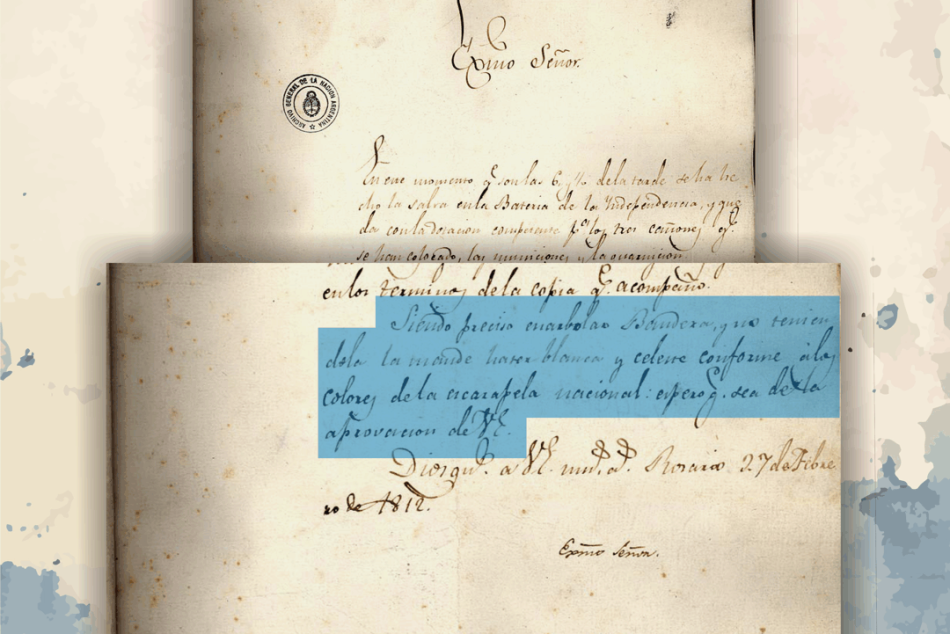 Exmo Señor.
ARCHIVO GENERAL DE LA NACION ARGENTINA
En este momento q.e son las 6 y ½ de la tarde se ha he
cho la salva en la Bateria de la Independencia, y que
da con la dotacion competente p.a los tres cañones q.e
se han colocado, las municiones y la guarnicion.
en los terminos de la copia q.e acompaño.
Siendo preciso enarbolar Bandera, y no tenien
dola la mande hacer blanca y celeste conforme a los
colores de la escarapela nacional: espero q.e sea de la
aprovacion de VE.
Dios gu.e a VE. m.s a.s Rosario 27 de Febre
ro de 1812.
Exmo Señor.